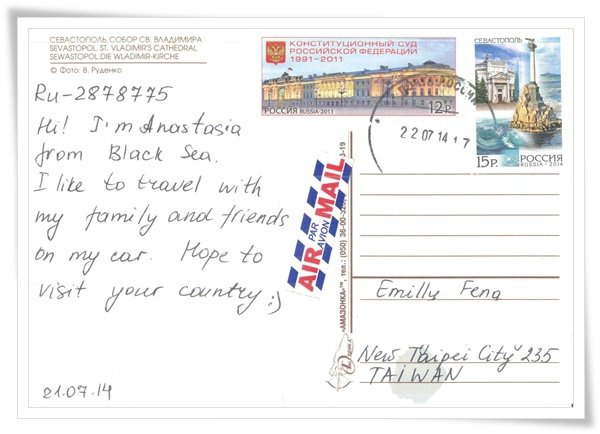 СЕВАСТОПОЛЬ. СОБОР СВ. ВЛАДИМИРА
SEVASTOPOL. ST. VLADIMIR'S CATHEDRAL
SEWASTOPOL. DIE WLADIMIR-KIRCHE
© Фото: В. Руденко
Ru-2878775
Hi! I'm Anastasia
from Black Sea.
I like to travel with
my family and friends
on my car. Hope to
visit your country :)
21.07.14
КОНСТИТУЦИОННЫЙ СУД
РОССИЙСКОЙ ФЕДЕРАЦИИ
1991-2011
РОССИЯ RUSSIA·2011
12 Р.
СЕВАСТОПОЛЬ
15 Р. РОССИЯ
RUSSIA · 2014
22 07 14 17
AIR MAIL
PAR
AVION
«АМАЗОНКА»™, тел.: (050) 36-00-32
Emilly Feng
New Taipei City 235
TAIWAN